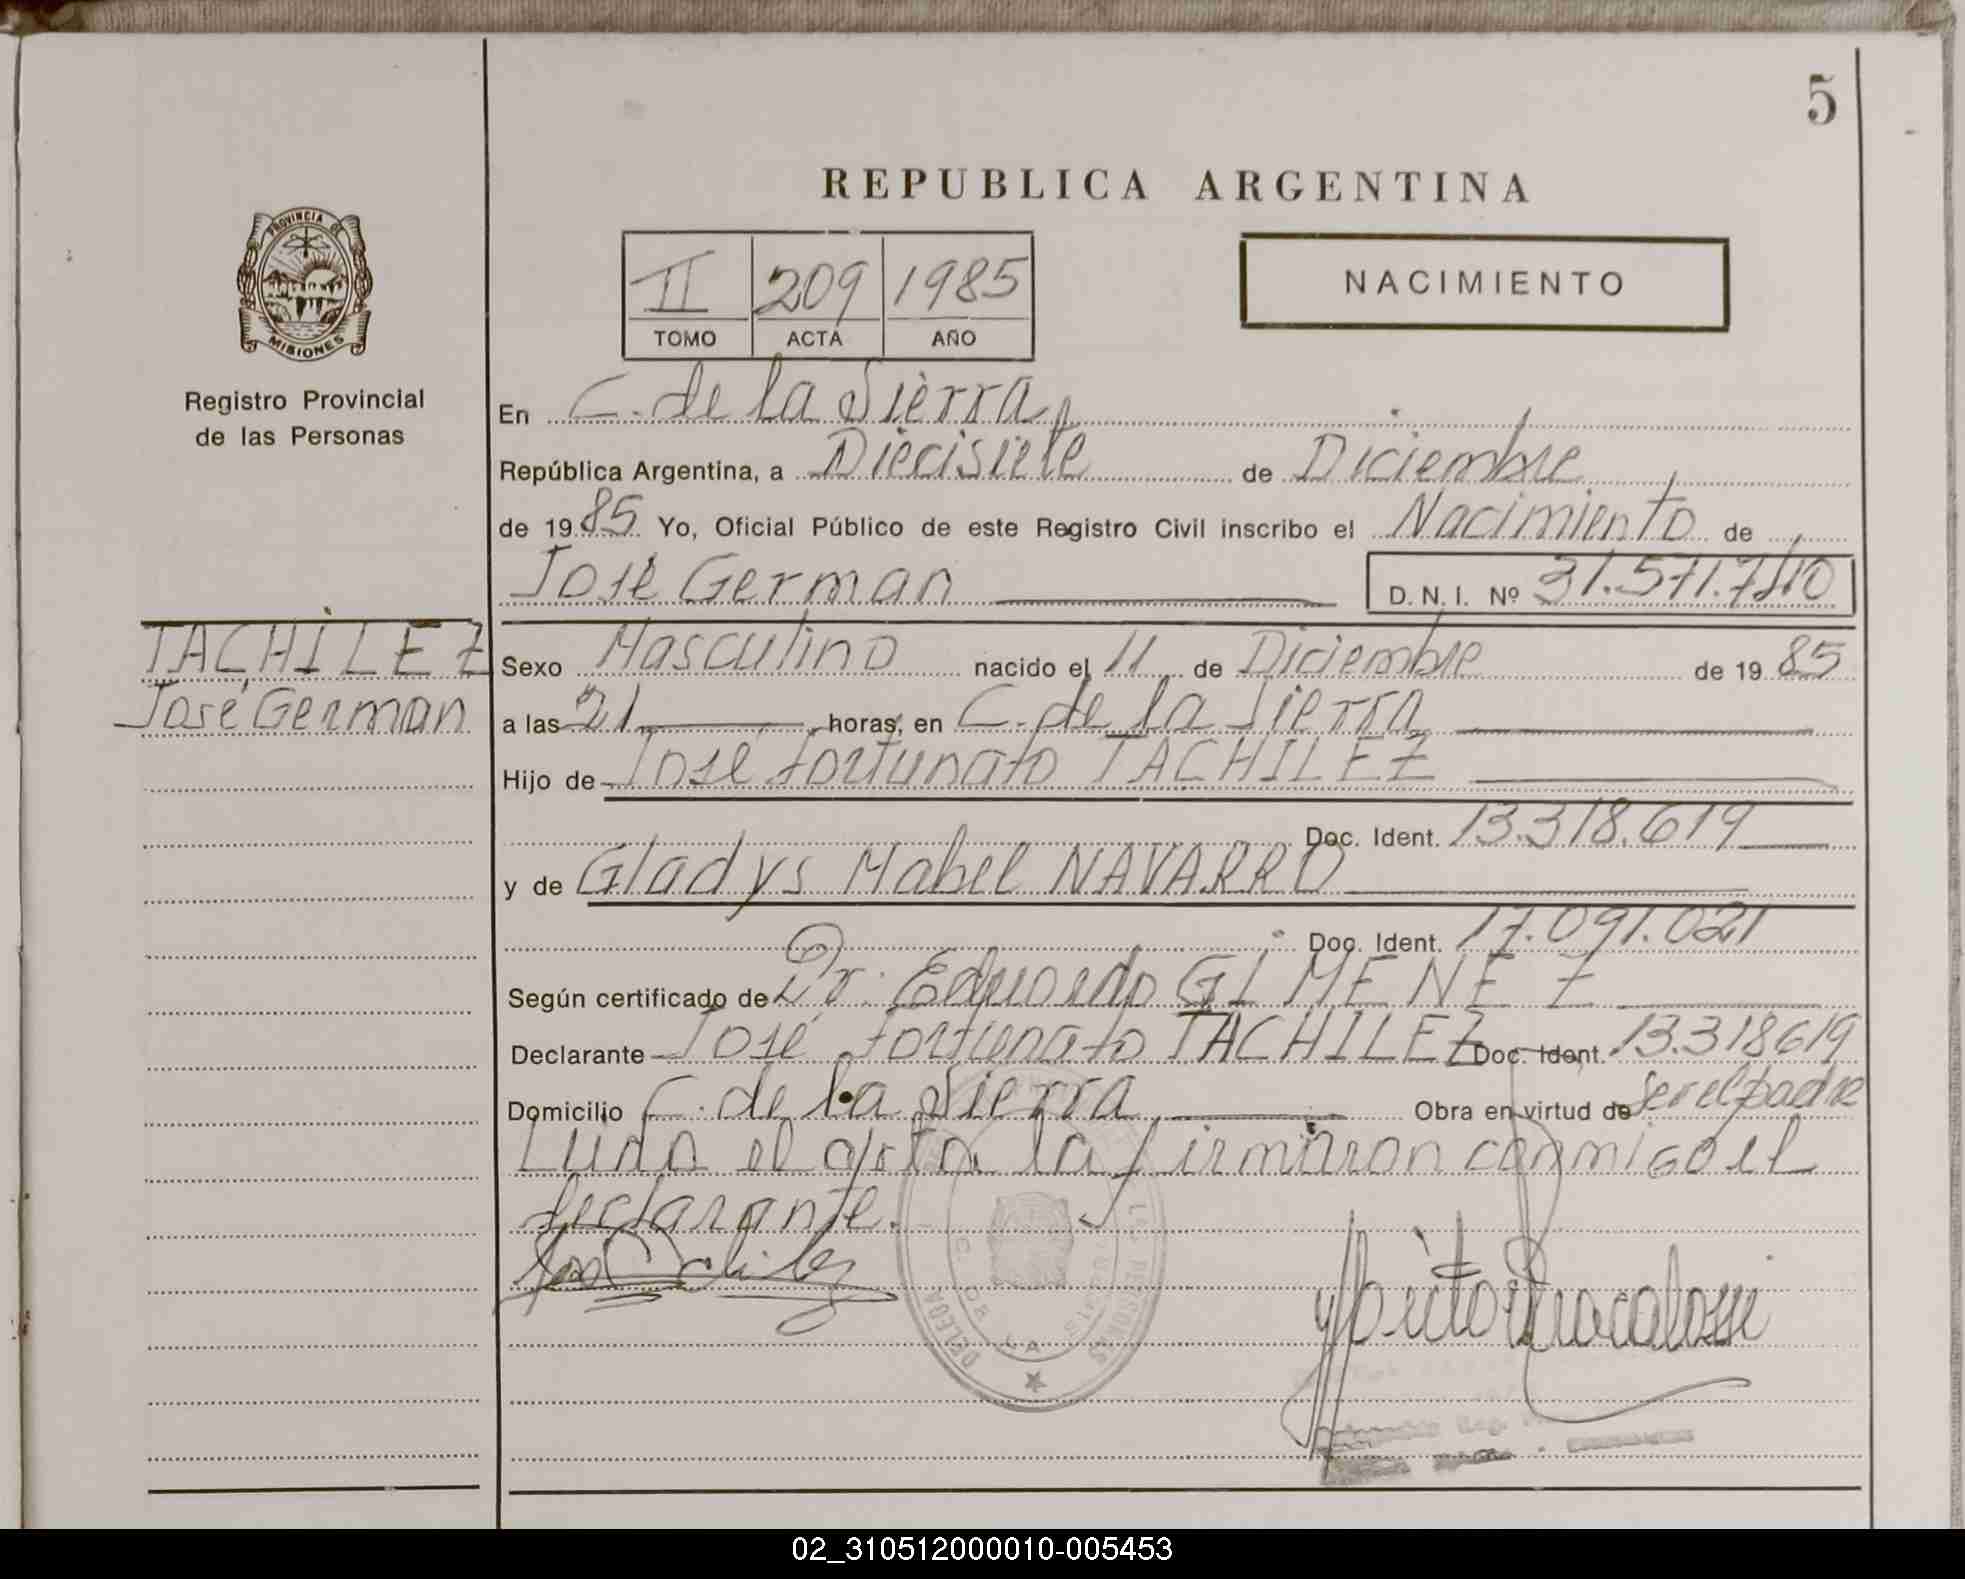 5
REPUBLICA ARGENTINA
PROVINCIA DE
MISIONES
Registro Provincial
de las Personas
II 209 1985
TOMO ACTA AÑO
NACIMIENTO
En C. de la Sierra
República Argentina, a Diecisiete de Diciembre
de 1985 Yo, Oficial Público de este Registro Civil inscribo el Nacimiento de
José German D. N. I. Nº 31.571.710
TACHILEZ
José German
Sexo Masculino nacido el 11 de Diciembre de 1985
a las 21 horas, en C. de la Sierra
Hijo de José Fortunato TACHILEZ
Doc. Ident. 13.318.619
y de Gladys Mabel NAVARRO
Doc. Ident. 17.091.021
Según certificado de Dr. Eduardo GIMENEZ
Declarante José Fortunato TACHILEZ Doc. Ident. 13.318619
Domicilio C. de la Sierra Obra en virtud de ser el padre
Luida el acta la firmaron conmigo el
declarante.
02_310512000010-005453